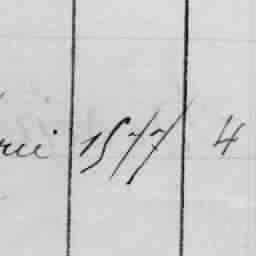 rie 1577 4